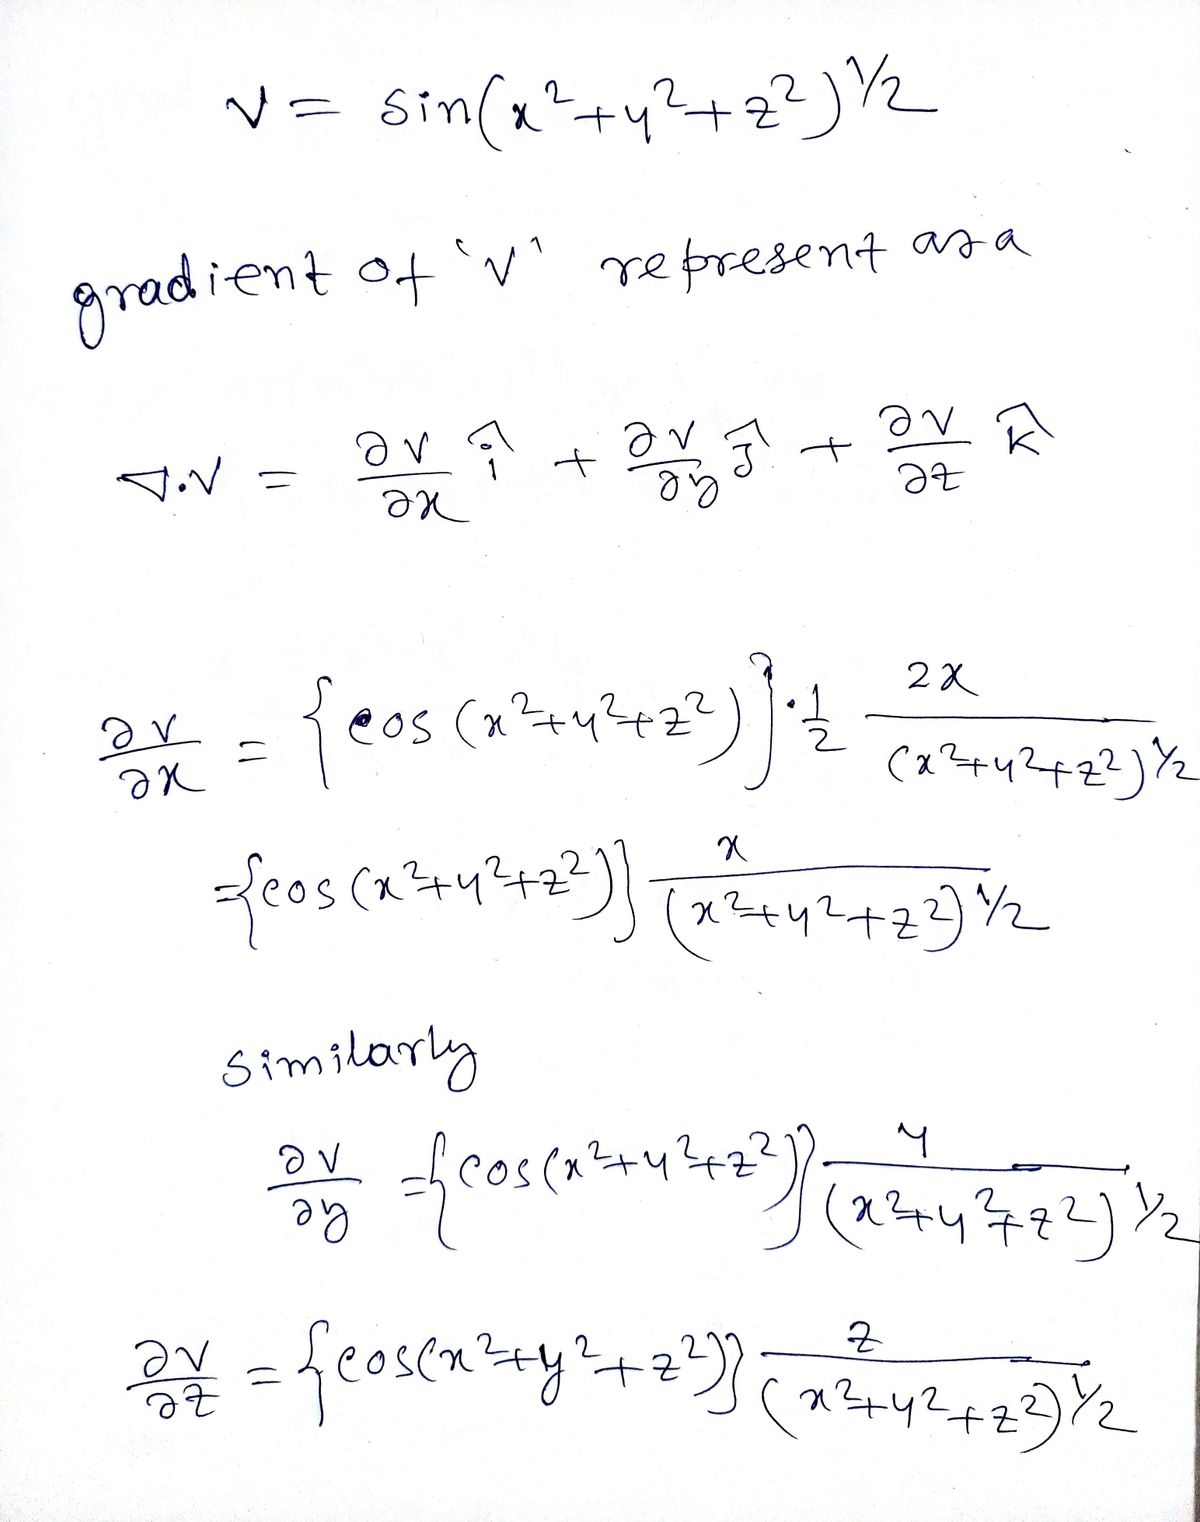 v = sin(x²+y²+z²)^1/2
gradient of 'v' represent as a
∇.v = ∂v/∂x î + ∂v/∂y ĵ + ∂v/∂z k̂
∂v/∂x = {cos (x²+y²+z²)}·1/2 2x/(x²+y²+z²)^1/2
={cos (x²+y²+z²)} x/(x²+y²+z²)^1/2
similarly
∂v/∂y ={cos(x²+y²+z²)} y/(x²+y²+z²)^1/2
∂v/∂z = {cos(x²+y²+z²)} z/(x²+y²+z²)^1/2